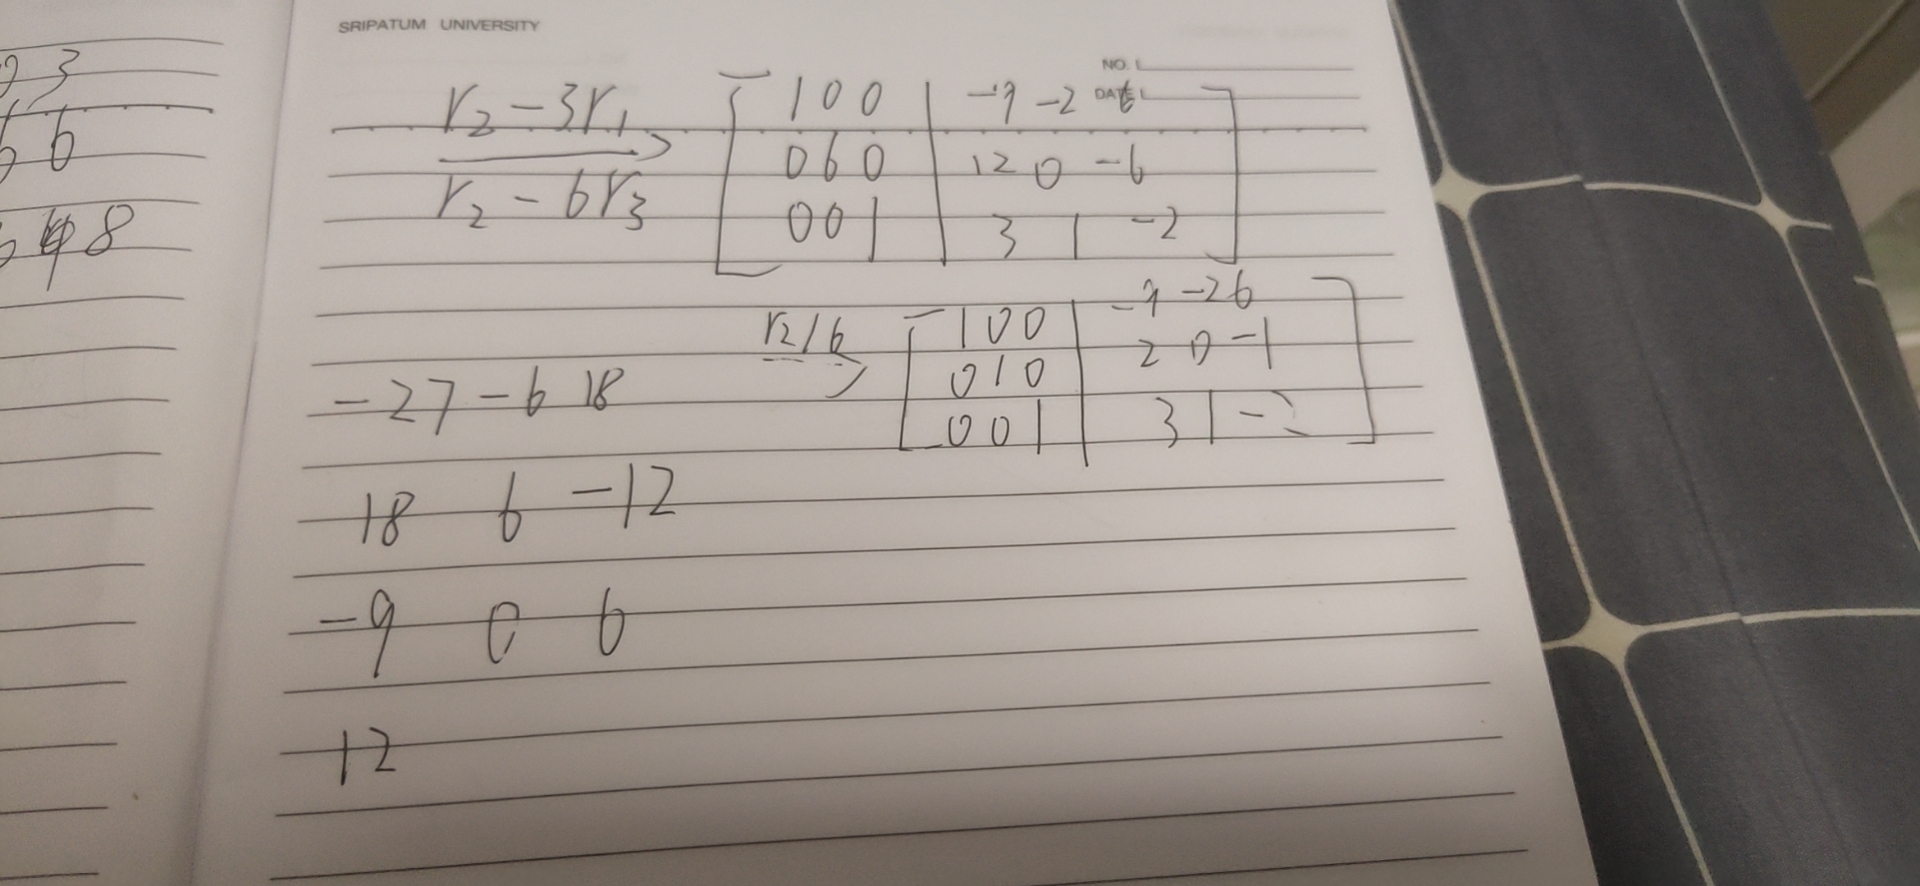 SRIPATUM UNIVERSITY
NO.
DATE
3
6
8
r2 - 3r1
r2 - 6r3
1 0 0 | -9 -2 6
0 6 0 | 12 0 -6
0 0 1 | 3 1 -2
r2/6
1 0 0 | -9 -2 6
0 1 0 | 2 0 -1
0 0 1 | 3 1 -2
-27 -6 18
18 6 -12
-9 0 6
12